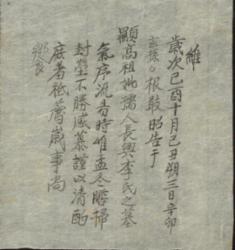 維
歲次己酉十月己丑朔三日辛卯
玄孫 敢昭告于
顯高祖妣孺人長興李氏之墓
氣序流易時惟孟冬瞻掃
封塋不勝感慕謹以清酌
庶羞祗薦歲事尚
饗